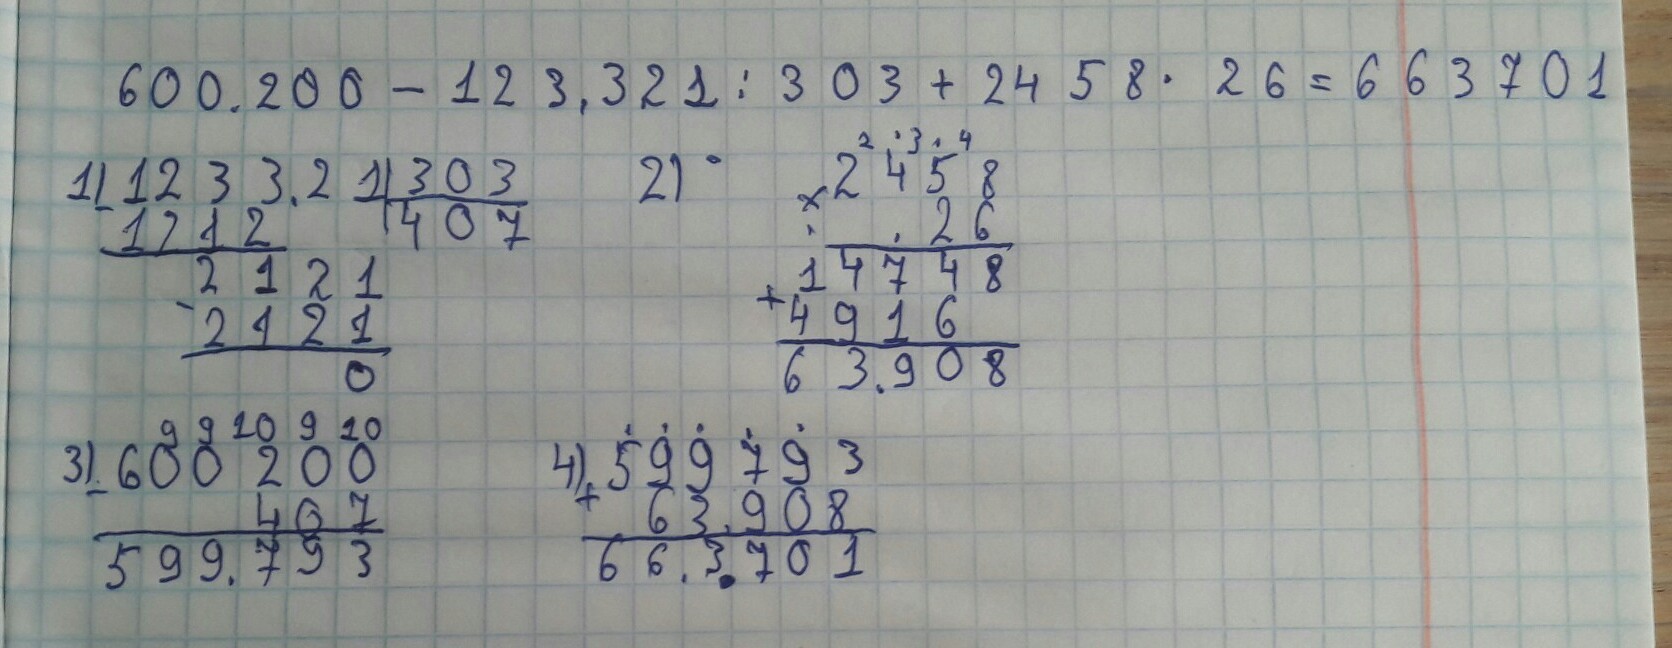 600.200 - 123.321 : 303 + 2458 · 26 = 663701
1) 1233.21 | 303
- 1212 | 407
2121
- 2121
0
2) 2 3 4
× 2458
26
14748
+ 4916
63.908
3) 9 9 10 9 10
- 600200
407
599.793
4) 599793
+ 63.908
66.3.701